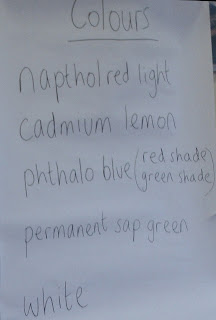 Colours
napthol red light
cadmium lemon
phthalo blue (red shade
green shade)
permanent sap green
white